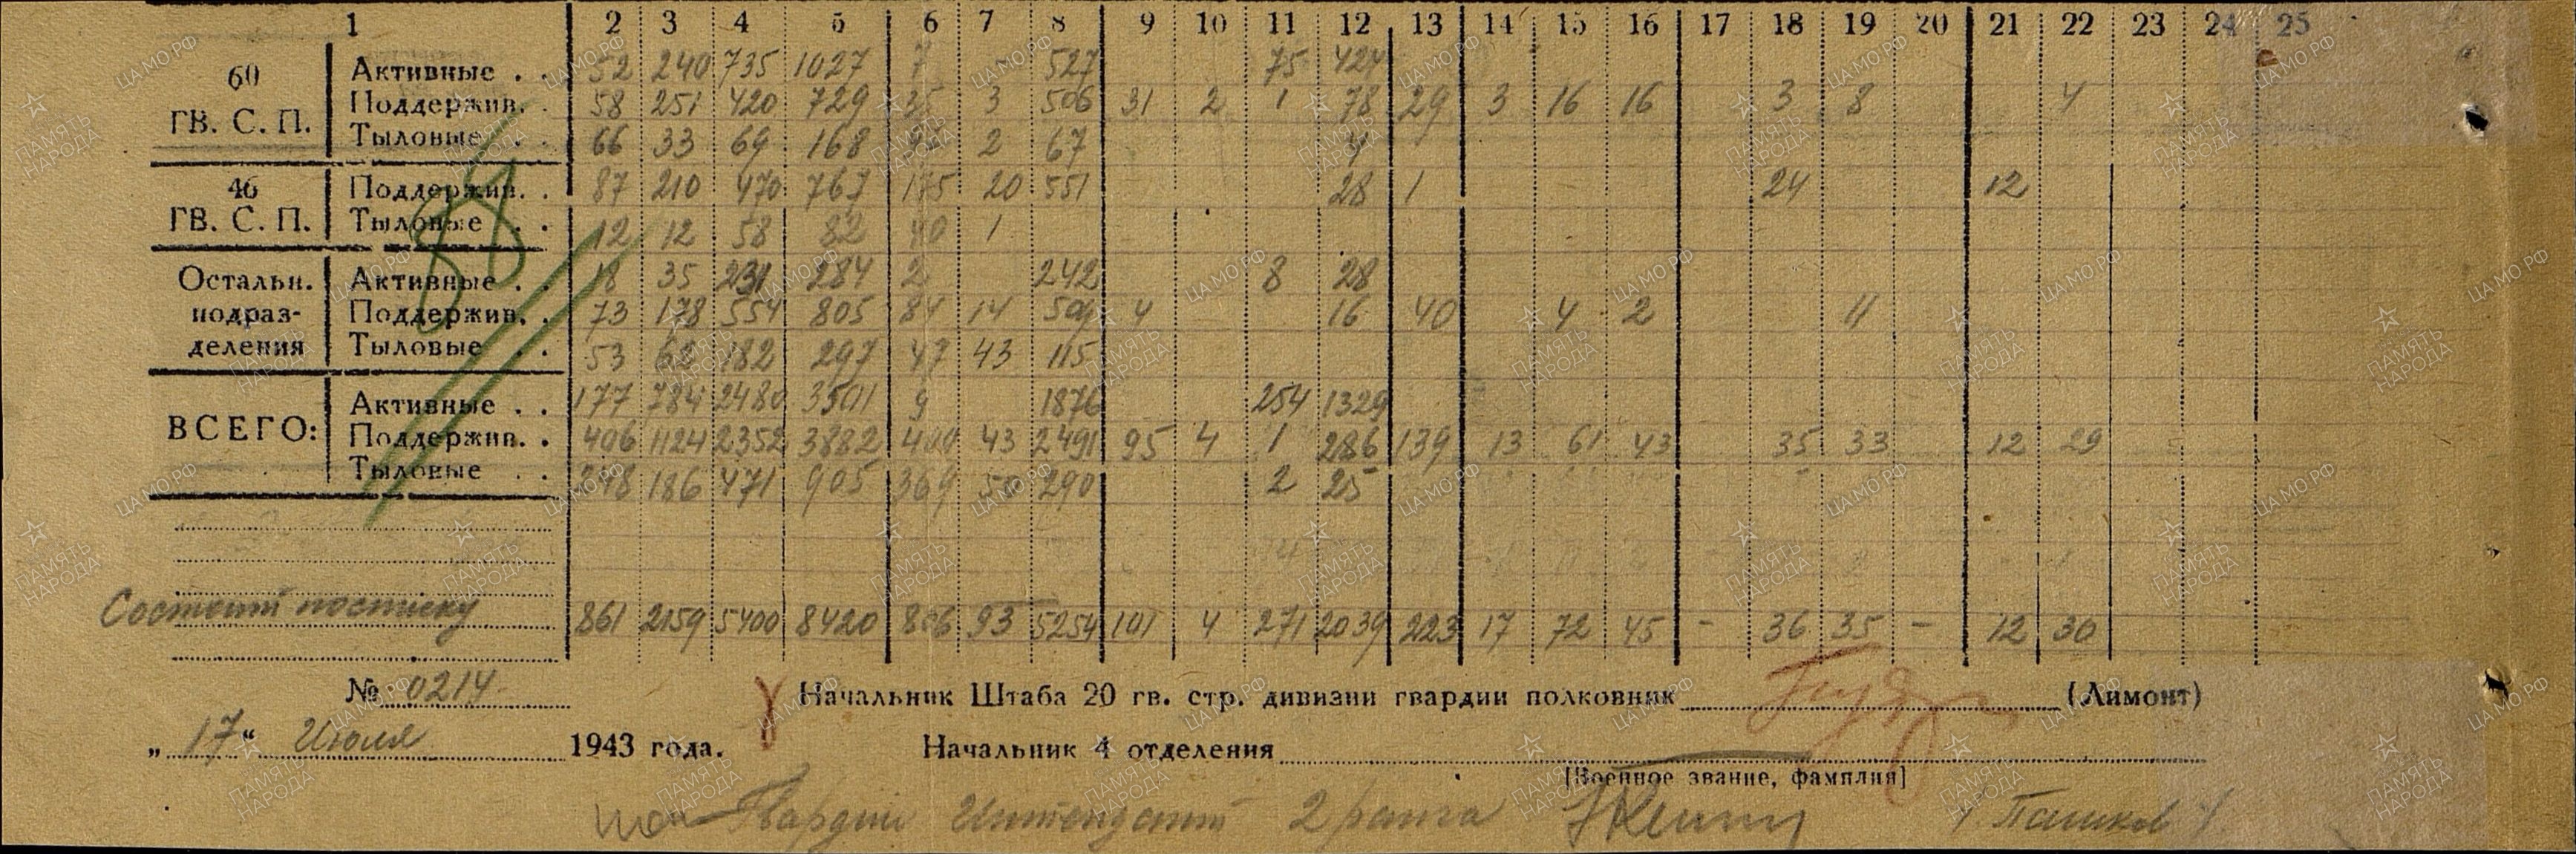 1 2 3 4 5 6 7 8 9 10 11 12 13 14 15 16 17 18 19 20 21 22 23 24 25
60 ГВ. С. П. Активные . . 52 240 735 1027 7 527 75 424
Поддержив. . 58 251 420 729 35 3 506 31 2 1 78 29 3 16 16 3 8 4
Тыловые . . 66 33 69 168 2 67 4
46 ГВ. С. П. Поддержив. . 87 210 470 767 175 20 551 28 1 24 12
Тыловые . . 12 12 58 82 40 1
Остальн. подраз-деления Активные . . 18 35 231 284 2 242 8 28
Поддержив. . 73 178 554 805 84 14 509 4 16 40 4 2 11
Тыловые . . 53 62 182 297 47 43 115
ВСЕГО: Активные . . 177 784 2480 3501 9 1876 254 1329
Поддержив. . 406 1124 2352 3882 400 43 2491 95 4 1 286 139 13 61 43 35 33 12 29
Тыловые . . 248 186 471 905 369 50 290 2 25
Состоит по списку 861 2159 5400 8420 806 93 5254 101 4 271 2039 223 17 72 45 - 36 35 - 12 30
№ 0214
Начальник Штаба 20 гв. стр. дивизии гвардии полковник (Лимонт)
„ 17 “ Июля 1943 года.
Начальник 4 отделения
[Военное звание, фамилия]
Гвардии Интендант 2 ранга (Пашков)
ЦАМО РФ
ПАМЯТЬ НАРОДА